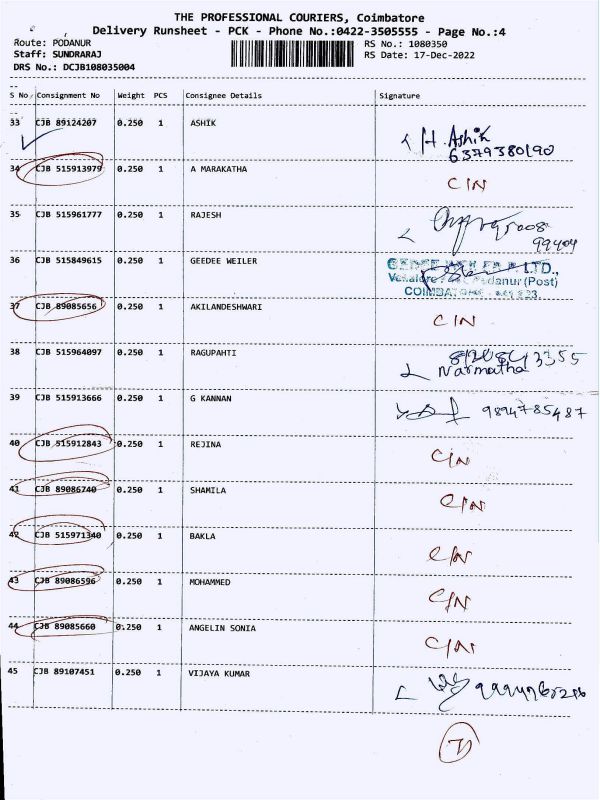 THE PROFESSIONAL COURIERS, Coimbatore
Delivery Runsheet - PCK - Phone No.:0422-3505555 - Page No.:4
Route: PODANUR RS No.: 1080350
Staff: SUNDRARAJ RS Date: 17-Dec-2022
DRS No.: DCJB108035004
S No Consignment No Weight PCS Consignee Details Signature
33 CJB 89124207 0.250 1 ASHIK H. Ashik
6379380190
34 CJB 515913979 0.250 1 A MARAKATHA CIN
35 CJB 515961777 0.250 1 RAJESH
99404
36 CJB 515849615 0.250 1 GEEDEE WEILER GEDEE WEILER P LTD.,
Podanur (Post)
37 CJB 89085656 0.250 1 AKILANDESHWARI CIN
38 CJB 515964097 0.250 1 RAGUPAHTI
Narmatha
39 CJB 515913666 0.250 1 G KANNAN 9894785487
40 CJB 515912843 0.250 1 REJINA CIN
41 CJB 89086740 0.250 1 SHAMILA CIN
42 CJB 515971340 0.250 1 BAKLA CIN
43 CJB 89086596 0.250 1 MOHAMMED CIN
44 CJB 89085660 0.250 1 ANGELIN SONIA CIN
45 CJB 89107451 0.250 1 VIJAYA KUMAR